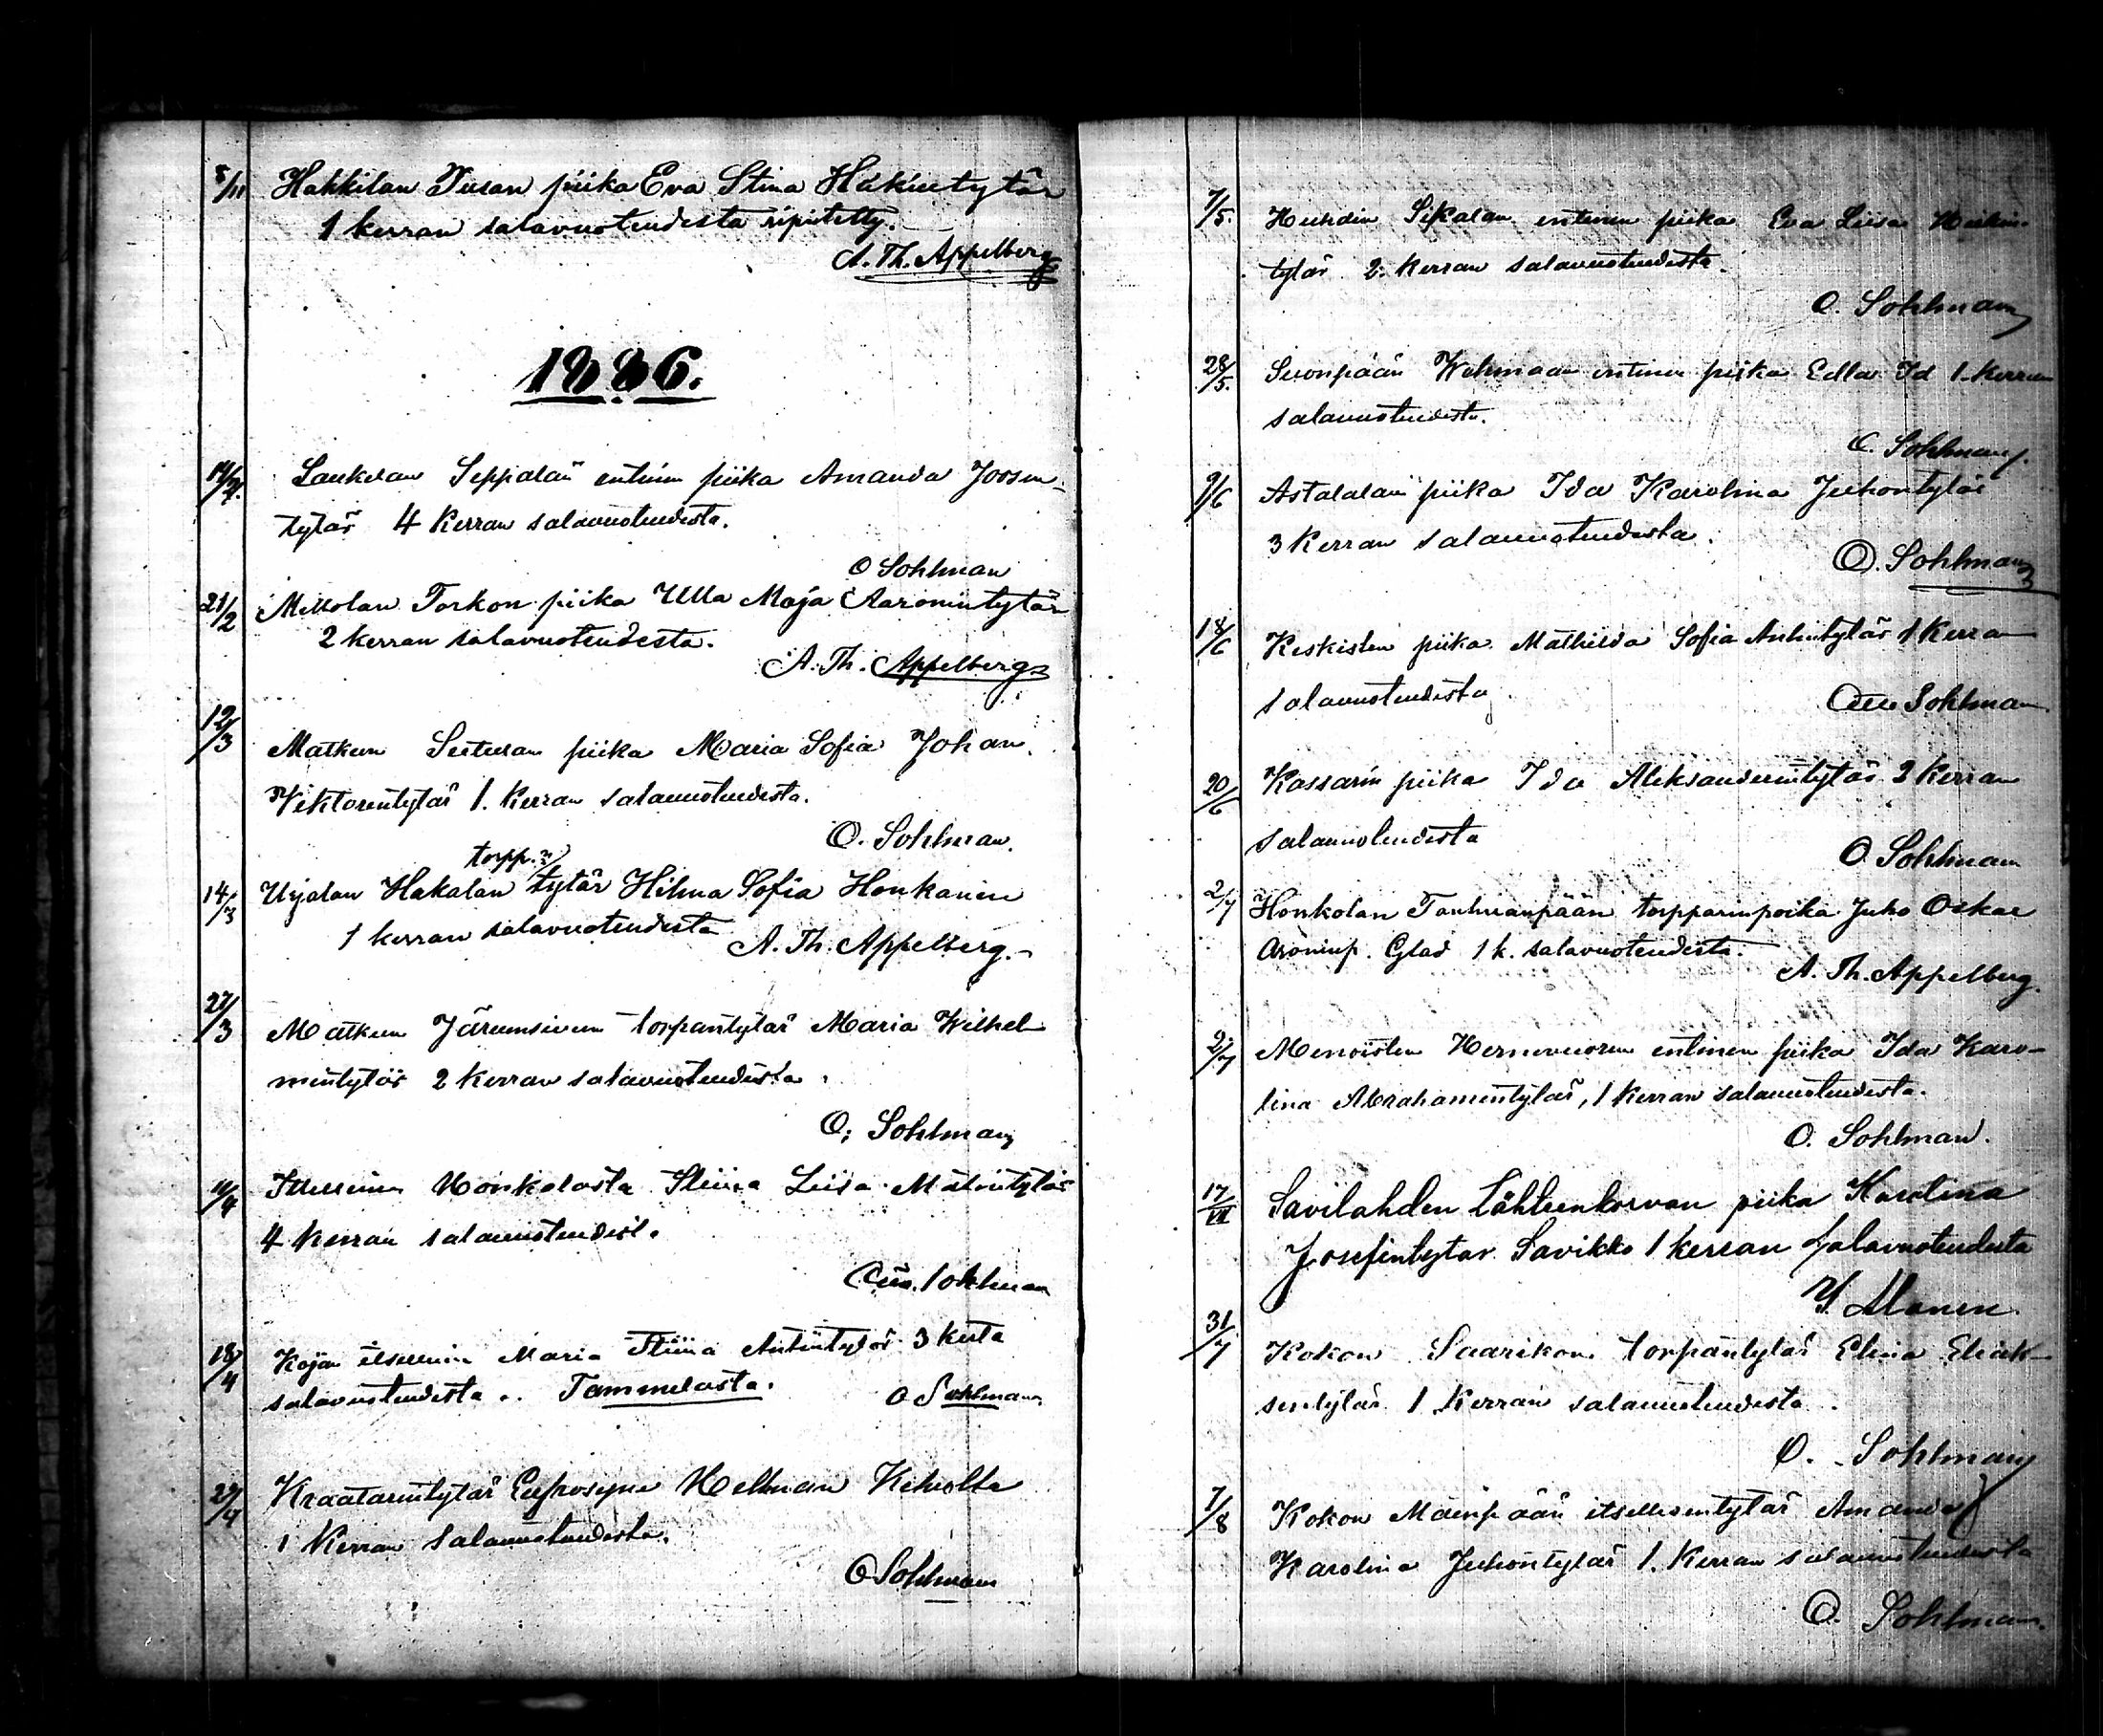 5/11 Hakkilan Tusan piika Eva Stina Häkintytär
1 kerran salavuoteudesta ripitetty.
A. Th. Appelberg
1886.
14/2. Laukelan Seppälän entinen piika Amanda Joosen-
tytär 4 Kerran salavuoteudesta.
O Sohlman
21/2 Mellolan Torkon piika Ulla Maja Aaronintytär
2 kerran salavuoteudesta.
A. Th. Appelberg
12/3 Matkun Seeturan piika Maria Sofia Johan
Viktorintytär 1. Kerran salavuoteudesta.
O. Sohlman.
torpp.n
14/3 Urjalan Hakalan tytär Hilma Sofia Honkanen
1 kerran salavuoteudesta
A. Th. Appelberg.
27/3 Matkun torpantytär Maria Wilhel-
mintytär 2 Kerran salavuoteudesta.
O. Sohlman
11/4 Itsellinen Honkolasta Stiina Liisa Matintytär
4 Kerran salavuoteudest.
Sohlman
18/4 Kojon itsellinen Maria Stiina Antintytär 3 kerta
salavuoteudesta.. Tammelasta.
O Sohlman
29/4 Kraatarintytär Eufrosyne Hellman Kehrolta
1 Kerran Salavuoteudesta.
O Sohlman
7/5. Huhdin Sikalan entinen piika Eva Liisa Heikin-
tytär 2. Kerran salavuoteudesta.
O. Sohlman
28/5. Wahmaan entinen piika Edla Id 1. Kerran
salavuoteudesta.
O. Sohlman.
9/6 Astalalan piika Ida Karolina Juhontytär
3 Kerran salavuoteudesta.
O. Sohlman
18/6 Keskisten piika Mathilda Sofia Antintytär 1 Kerran
salavuoteudesta
Sohlman
20/6 Kassarin piika Ida Aleksanderintytär 2 Kerran
salavuoteudesta
O Sohlman
2/7 Honkolan Tanhuanpään torpparinpoika Juho Oskar
Aroninp. Glad 1 k. salavuoteudesta.
A. Th. Appelberg.
2/7 Menoisten Hernevuoren entinen piika Ida Karo-
lina Abrahamintytär, 1 Kerran salavuoteudesta.
O. Sohlman.
17/VII Savilahden Lähteenkorvan piika Karolina
Josefintytär Savikko 1 kerran salavuoteudesta
Y. Alanen.
31/7 Kokon Saarikon torpantytär Elina Eliak-
sentytär 1 Kerran salavuoteudesta.
O. Sohlman
7/8 Kokon Mäenpään itsellisentytär Amanda
Karolina Juhontytär 1. Kerran salavuoteudesta
O. Sohlman.